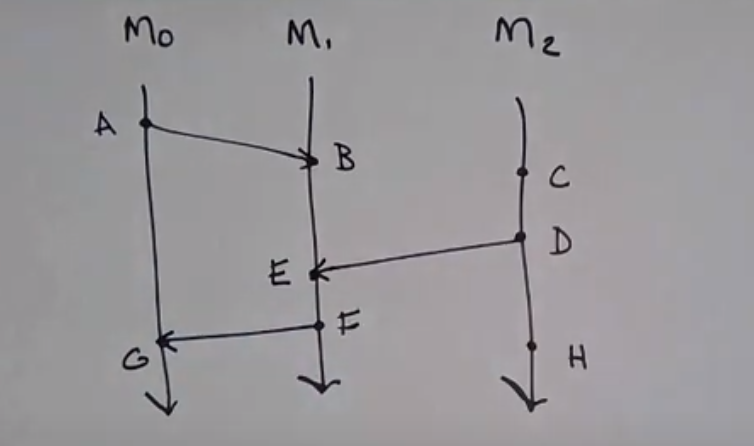 M0 M1 M2
A
B
C
D
E
F
G
H